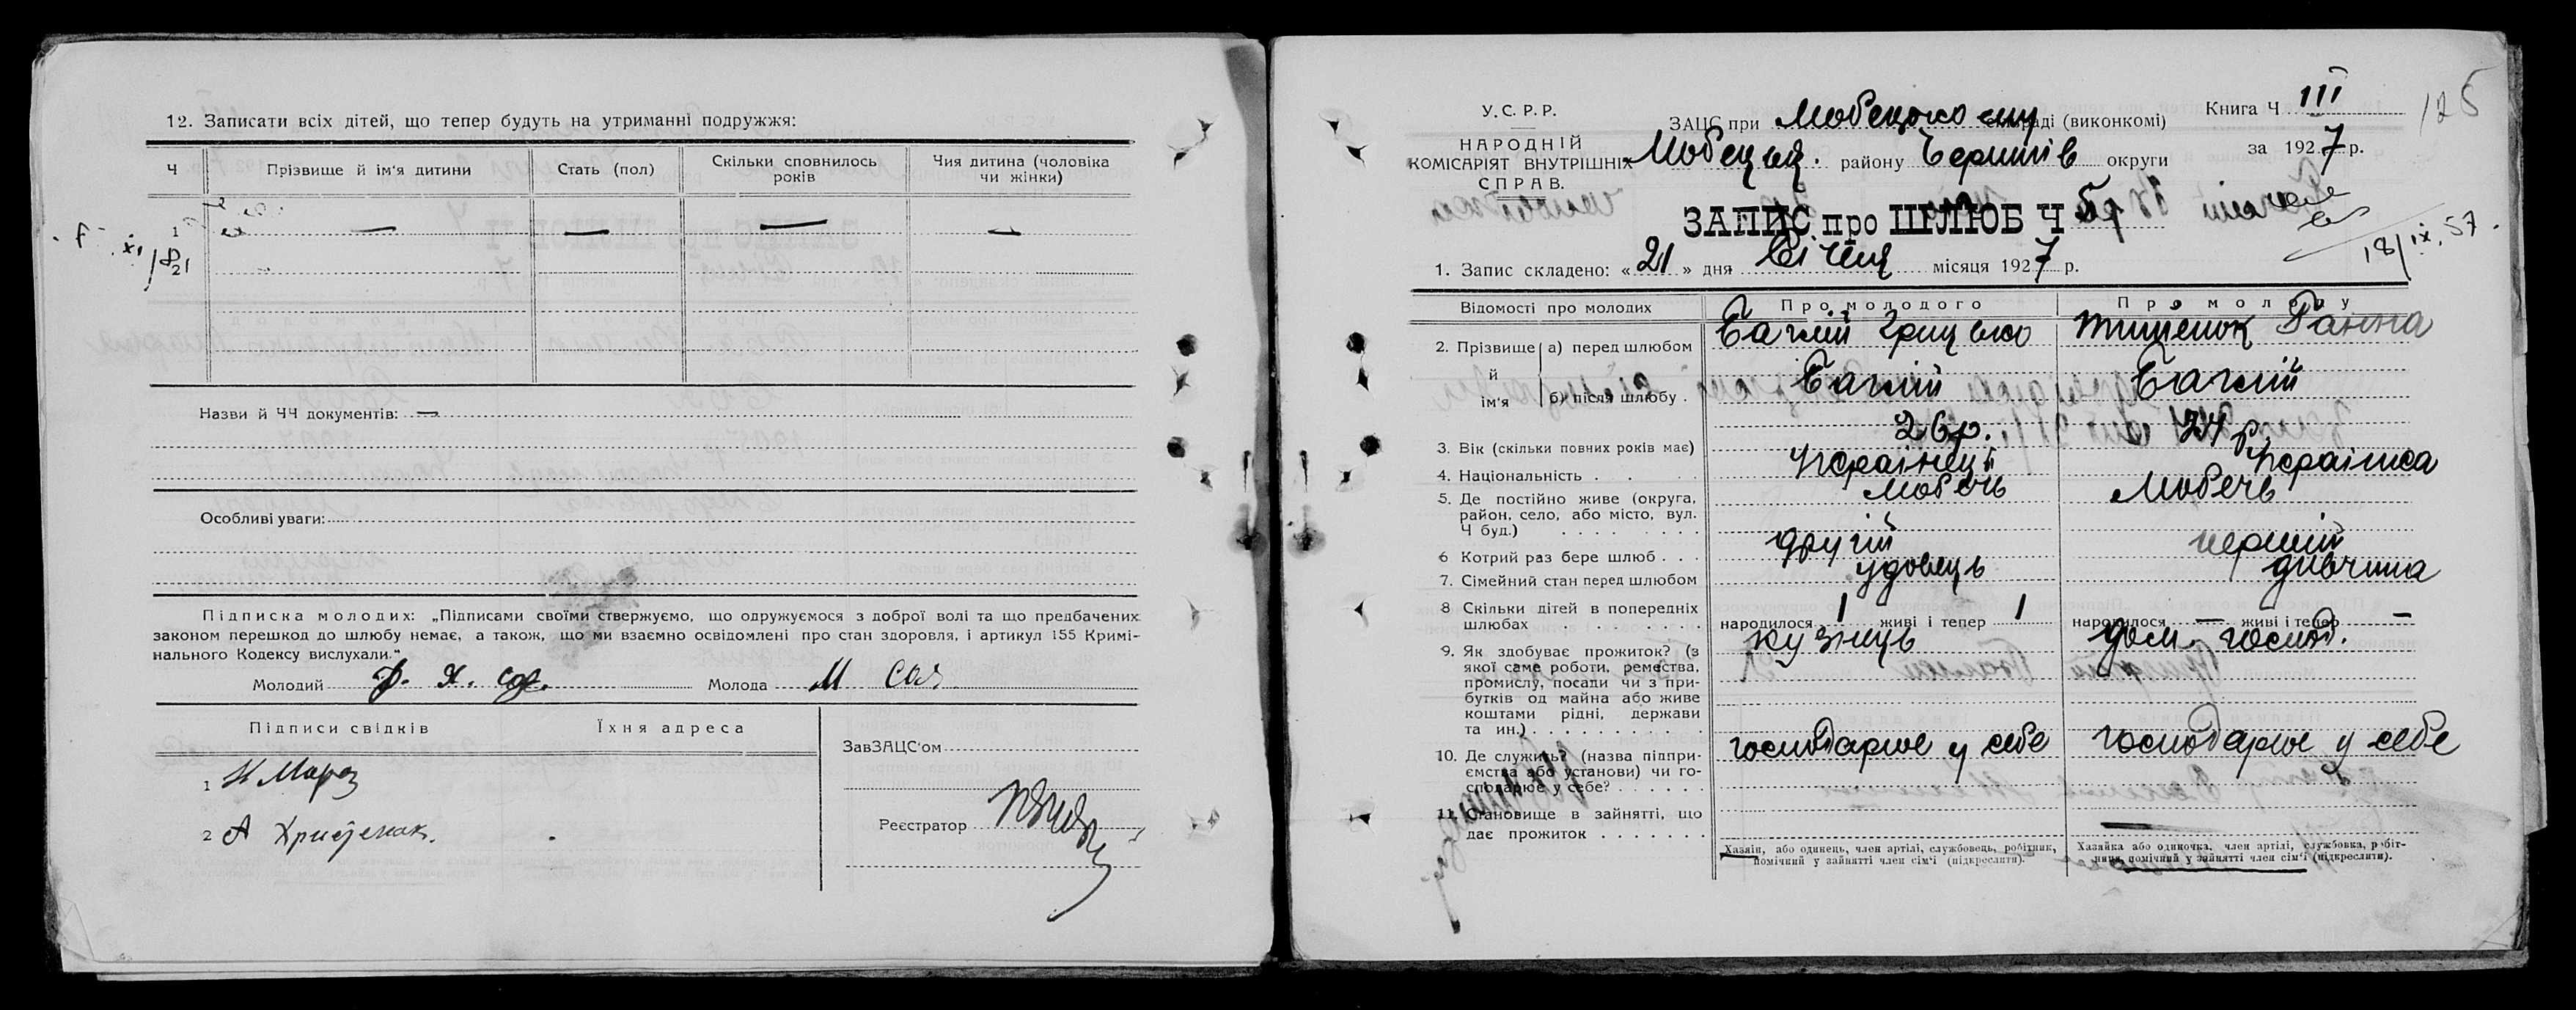 12. Записати всіх дітей, що тепер будуть на утриманні подружжя:
Ч
Прізвище й ім'я дитини
Стать (пол)
Скільки сповнилось років
Чия дитина (чоловіка чи жінки)
1 — — — —
Назви й ЧЧ документів: —
Особливі уваги:
Підписка молодих: „Підписами своїми стверджуємо, що одружуємося з доброї волі та що предбачених
законом перешкод до шлюбу немає, а також, що ми взаємно освідомлені про стан здоровля, і артикул 155 Кримі-
нального Кодексу вислухали.“
Молодий
Молода
Підписи свідків
Їхня адреса
1
2 А Христенок.
ЗавЗАЦС'ом
Реєстратор
125
У.С.Р.Р.
НАРОДНІЙ
КОМІСАРІЯТ ВНУТРІШНІХ
СПРАВ.
ЗАЦС при Любецькому раді (виконкомі)
Книга Ч III
Любецьк. району Чернігів округи
за 1927 р.
ЗАПИС про ШЛЮБ Ч
18/ix.57.
1. Запис складено: «21» дня Січня місяця 1927 р.
Відомості про молодих
Про молодого
Про молоду
2. Прізвище й ім'я
а) перед шлюбом
Баглій Грицько
Тищенок Ганна
б) після шлюбу
Баглій
Баглій
3. Вік (скільки повних років має)
26 р.
24 р.
4. Національність
Українец
Українка
5. Де постійно живе (округа, район, село, або місто, вул. Ч буд.)
Любечь
Любечь
6 Котрий раз бере шлюб
другій
перший
7. Сімейний стан перед шлюбом
удовець
дівчина
8 Скільки дітей в попередніх шлюбах
народилося 1 живі і тепер 1
народилося — живі і тепер —
9. Як здобуває прожиток? (з якої саме роботи, ремества, промислу, посади чи з прибутків од майна або живе коштами рідні, держави та ин.)
кузнець
дом. господ.
10. Де служить? (назва підприємства або установи) чи господарює у себе?
господарює у себе
господарює у себе
11. Становище в зайнятті, що дає прожиток
Хазяїн, або одинець, член артілі, службовець, робітник,
помічний у зайнятті член сім'ї (підкреслити).
Хазяйка або одиночка, член артілі, службовка, робіт-
ниця, помічний у зайнятті член сім'ї (підкреслити).